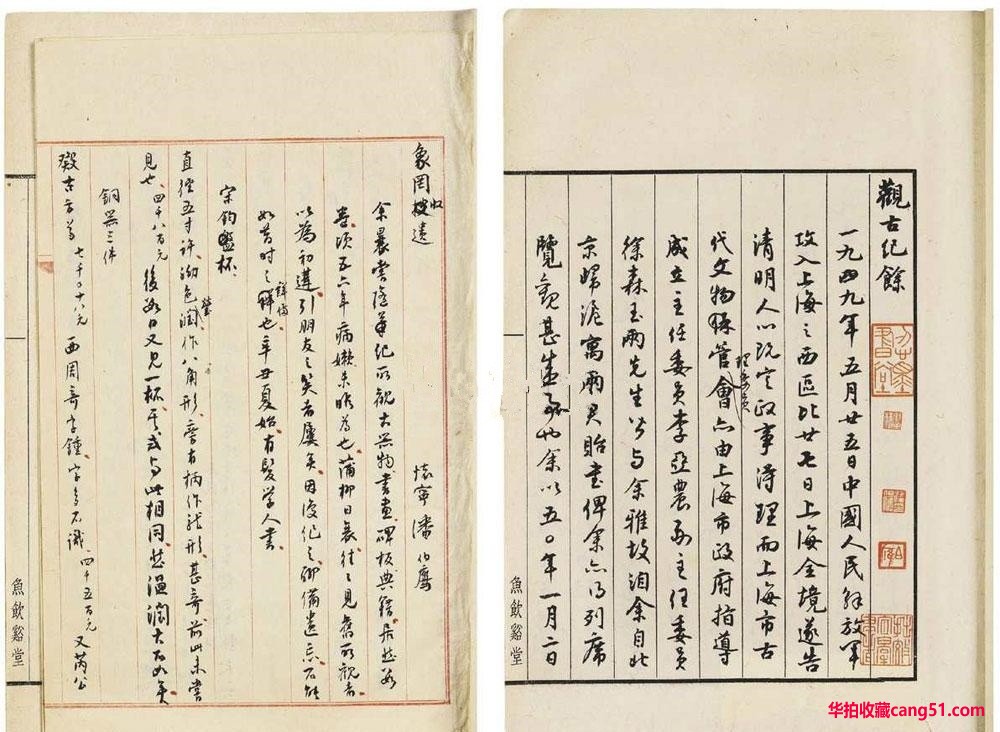 觀古紀餘
一九四九年五月廿五日中國人民解放軍
攻入上海之西區比廿七日上海全境遂告
清明人心既定政事浔理而上海市古
代文物管會亦由上海市政府指導
理委員
成立主任委員李亞農副主任委員
徐森玉兩先生皆与余雅故洎余自北
京歸滬寓兩君貽書俾余亦得列席
覽觀甚盛事也余以五〇年一月二日
魚飲谿堂
象罔收遺
懷寧潘伯鷹
余曩嘗隨筆紀所觀古器物書畫碑板典籍居然如
卷頃五六年病嬾未暇為也蒲柳日衰往之見舊所觀者
以為初遘引朋友之笑者屢矣因復紀之聊備遺忘不能
如昔時之詳備也辛丑夏始有髮学人書
宋鈞盌杯
直徑五寸許泑色瑩潤作八角形旁有柄作龍形甚奇前此未嘗
見也四千八百元 後數日又見一杯式与此相同然温潤大不如矣
銅器三件
殷古方尊七千〇十八元 西周奇字鍾字多不識四千五百元 又芮公
魚飲谿堂
华拍收藏cang51.com